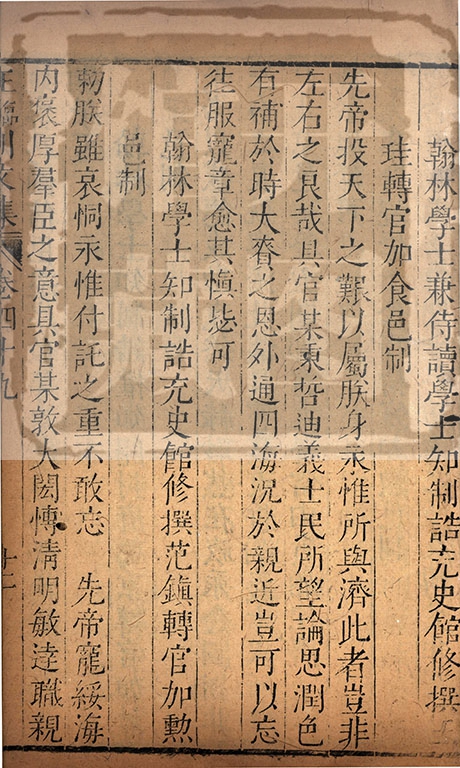 翰林學士兼侍讀學士知制誥充史館修撰王
珪轉官加食邑制
先帝投天下之艱以屬朕身永惟所與濟此者豈非
左右之良哉具官某秉哲迪義士民所望論思潤色
有補於時大賚之恩外通四海況於親近豈可以忘
徃服寵章愈其愼毖可
翰林學士知制誥充史館修撰范鎭轉官加勲
邑制
勑朕雖哀恫永惟付託之重不敢忘　先帝寵綏海
内褒厚羣臣之意具官某敦大閎慱清明敏達職親
王臨川文集 卷四十九 十二